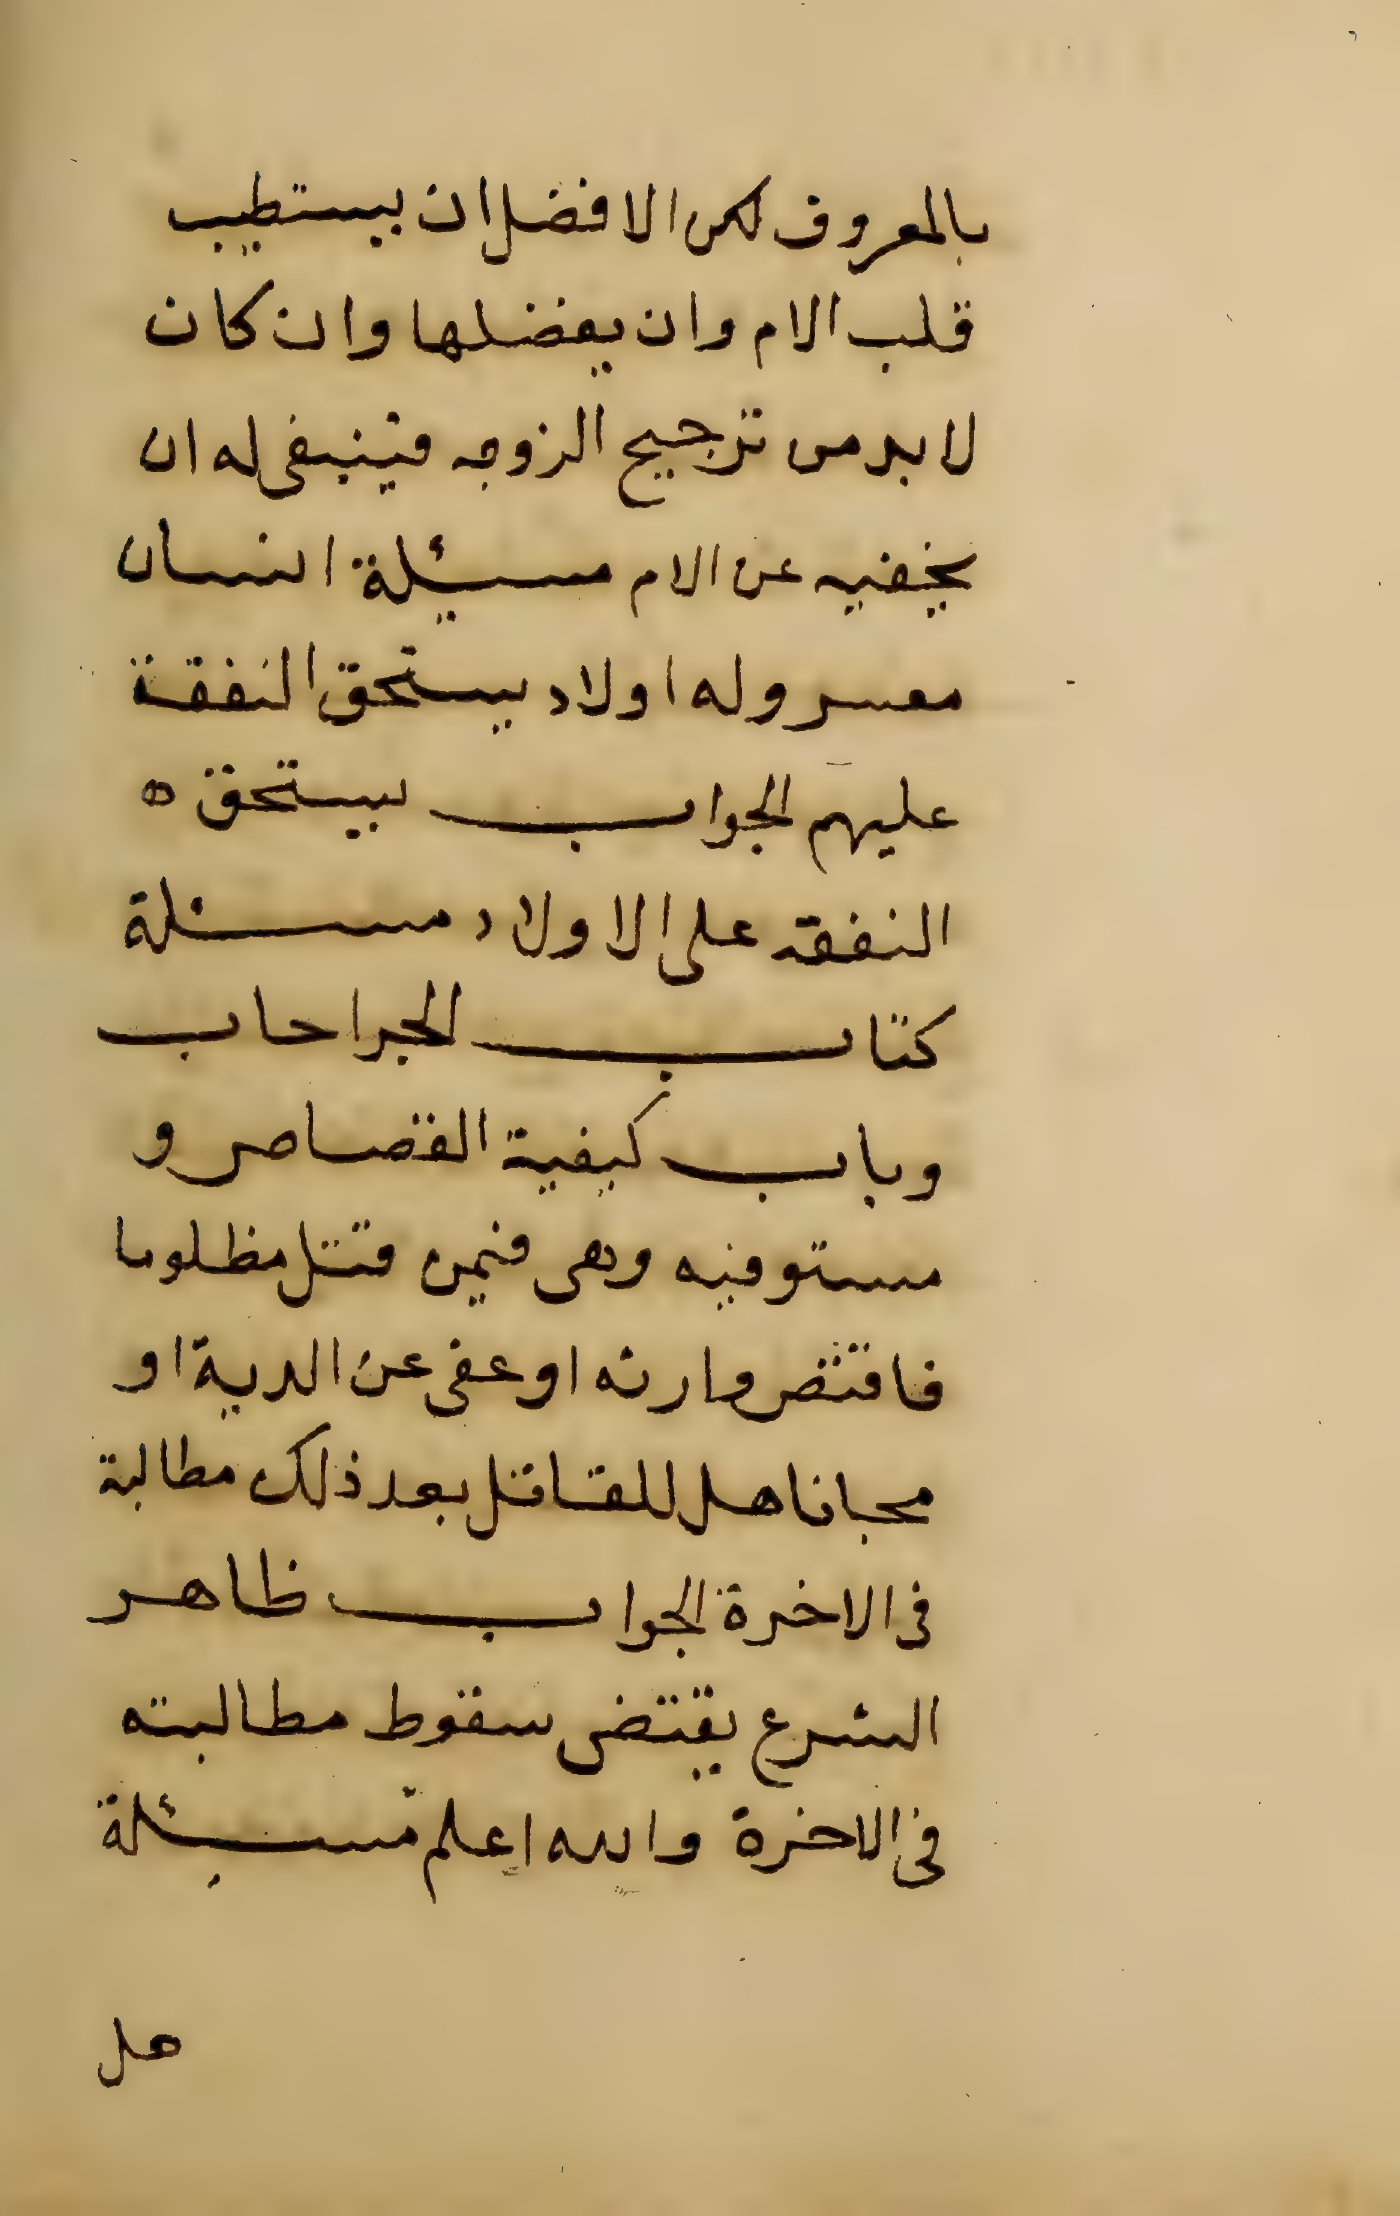 بالمعروف لكن الافضل ان يستطيب
قلب الام وان يفضلها وان كان
لا بد من ترجيح الزوجه فينبغى له ان
يخفيه عن الام مسئلة انسان
معسر وله اولاد يستحق النفقة
عليهم الجواب يستحق ه
النفقه على الاولاد مسئلة
كتاب الجراحاب
وباب كيفية القصاص و
مستوفيه وهى فيمن قتل مظلوما
فاقتض وارثه او عفى عن الدية او
مجانا هل للقاتل بعد ذلك مطالبة
فى الاخرة الجواب ظاهر
الشرع يقتضى سقوط مطالبته
فى الاخرة والله اعلم مسئلة
هل